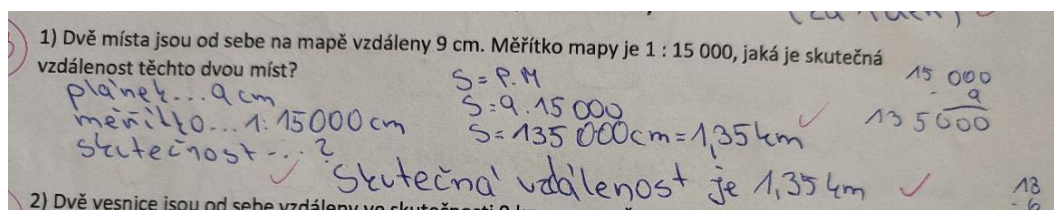 1) Dvě místa jsou od sebe na mapě vzdáleny 9 cm. Měřítko mapy je 1 : 15 000, jaká je skutečná
vzdálenost těchto dvou míst?
plánek... 9 cm
měřítko... 1: 15000 cm
skutečnost -... ?
S = P.M
S = 9 . 15 000
S = 135 000cm = 1,35 km
15 000
. 9
135 000
Skutečná vzdálenost je 1,35 km
13
- 6
2) Dvě vesnice jsou od sebe vzdáleny ve skutečnosti 9